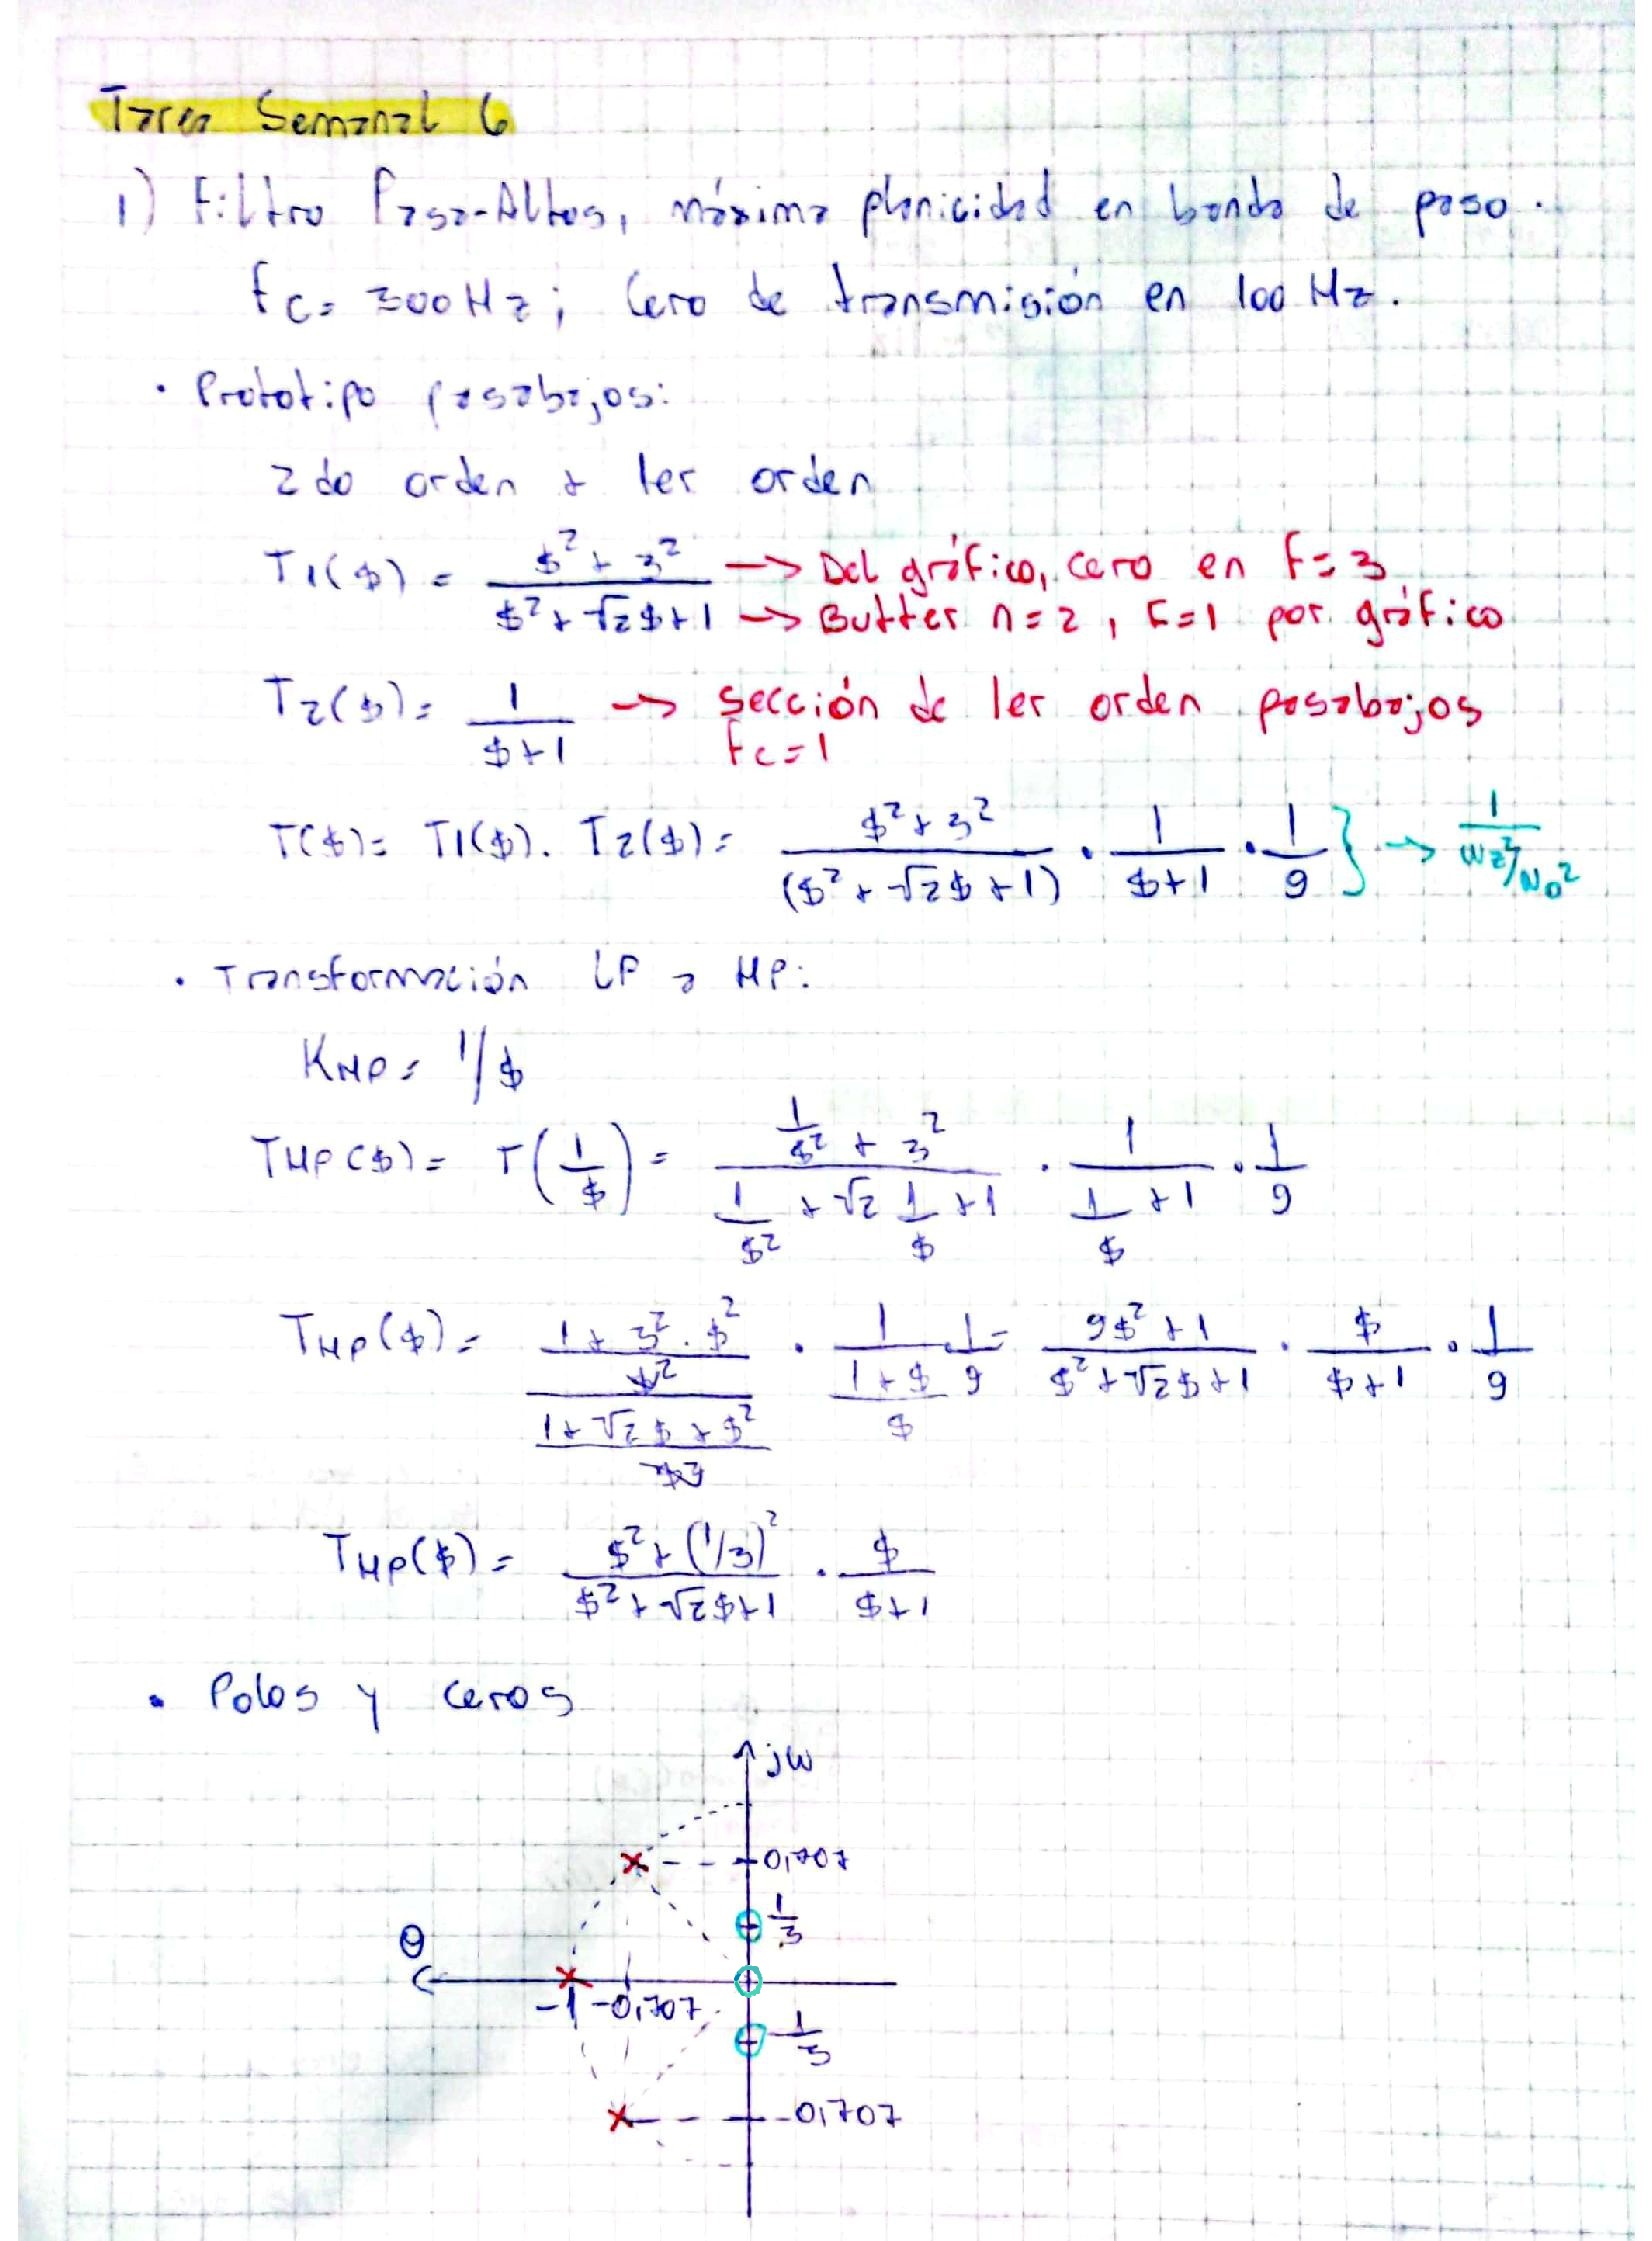 Tarea Semanal 6
1) Filtro Pasa-Altos, máxima planicidad en banda de paso.
fc= 300Hz; Cero de transmisión en 100 Hz.
• Prototipo pasabajos:
2do orden + 1er orden
T1($) = ($² + 3²)/($² + √2$ + 1) → Del gráfico, cero en f=3
→ Butter n=2, f=1 por gráfico
T2($) = 1/($+1) → sección de 1er orden pasabajos
fc=1
T($) = T1($). T2($) = ($² + 3²)/($² + √2$ + 1) · 1/($+1) · 1/9 } → 1/(wz²/w0²)
• Transformación LP a HP:
KHP = 1/$
THP($) = T(1/$) = (1/$² + 3²)/(1/$² + √2 1/$ + 1) · 1/(1/$ + 1) · 1/9
THP($) = ((1 + 3².$²)/$²)/((1 + √2$ + $²)/$²) · 1/((1+$)/$) · 1/9 = (9$² + 1)/($² + √2$ + 1) · $/($+1) · 1/9
THP($) = ($² + (1/3)²)/($² + √2$ + 1) · $/($+1)
• Polos y ceros
jw
0,707
1/3
θ
-1 -0,707
-1/3
-0,707